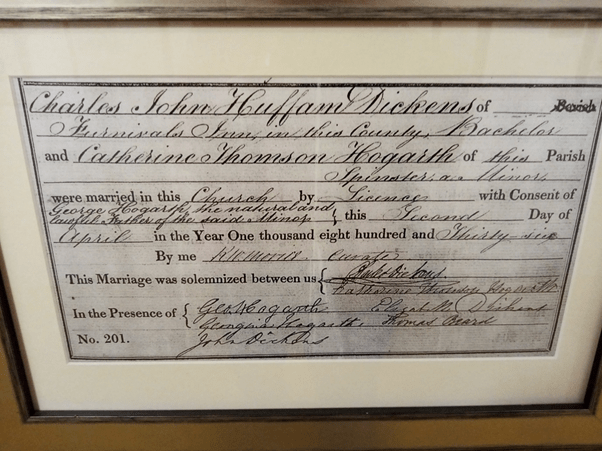 Charles John Huffam Dickens of Parish
Furnivals Inn, in this County, Bachelor
and Catherine Thomson Hogarth of this Parish
Spinster, a Minor,
were married in this Church by Licence with Consent of
George Hogarth, the natural and
lawful Father of the said Minor { this Second Day of
April in the Year One thousand eight hundred and Thirty-six
By me Curate
This Marriage was solemnized between us { Chas Dickens
Catherine Thomson Hogarth
In the Presence of { Geo Hogarth Elizabeth Dickens
Georgina Hogarth Thomas Beard
No. 201. John Dickens